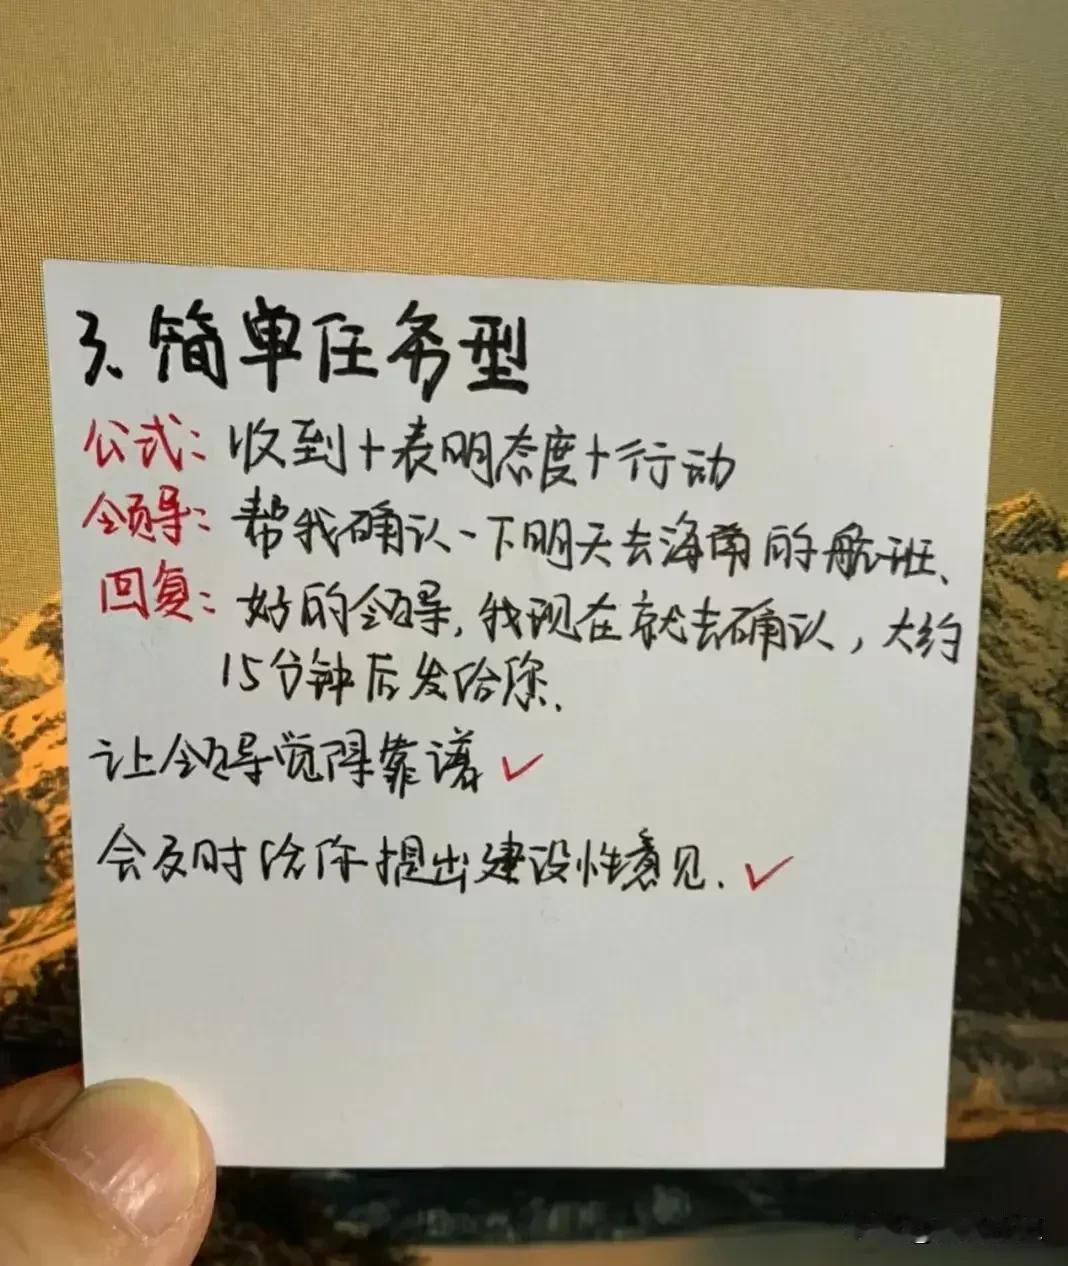 3、简单任务型
公式：收到+表明态度+行动
领导：帮我确认一下明天去海南的航班、
回复：好的领导，我现在就去确认，大约
15分钟后发给你.
让领导觉得靠谱✓
会及时给你提出建设性意见.✓